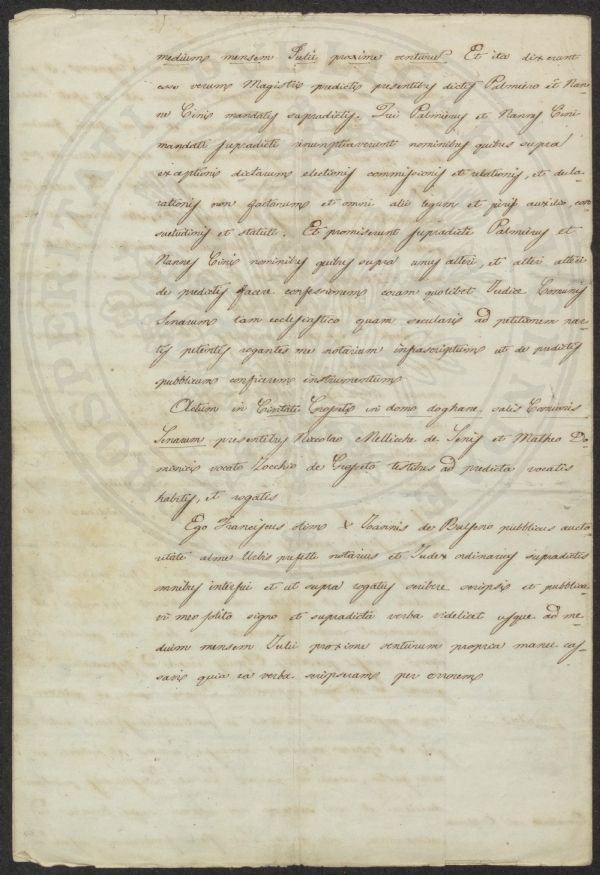 medium mensem Julii proxime venturu. Et ita dixerunt
esse verum Magistri predictis presentibus dictis Palmiero et Nan=
ne Cinis mandatis supradictis. Qui Palmierus et Nannes Cini
mandati supradicti renumptiaverunt nominibus quibus supra
exceptionis dictarum electionis commissionis et relationis, et decla=
rationis non factarum et omni alii legum et juris auxilio con
suetudinis et statuti. Et promiserunt supradicti Palmierus et
Nannes Cinis nominibus quibus supra unus alteri, et alter alteri
de predictis facere confessionem coram quolibet Judice Comunis
Senarum tam ecclesiastico quam secularis ad petitionem par=
tis petentis rogantes me notarium infrascriptum ut de predictis
pubblicum conficerem instrumentum
Actum in Civitate Grosseti in domo doghane salis Comunis
Senarum presentibus Niccolao Mellicche de Senis et Matheo Do=
minicis vocato Zocchio de Grosseto testibus ad predicta vocatis
habitis, et rogatis
Ego Franciscus olim Joannis de pubblicus aucto
ritate alme Urbis prefetti notarius et Judex ordinarius supradictis
omnibus interfui et ut supra rogatus scribere scripsi et pubblica=
vi meo solito signo et supradicta verba videlicet usque ad me=
dium mensem Julii proxime venturum propria manu cas=
savi quia ea verba scripseram per errorem